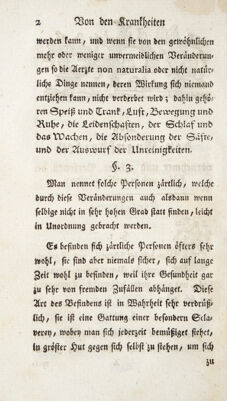 2 Von den Krankheiten
werden kann, und wenn sie von den gewöhnlichen
mehr oder weniger unvermeidlichen Veränderun-
gen so die Aerzte non naturalia oder nicht natür-
liche Dinge nennen, deren Wirkung sich niemand
entziehen kann, nicht verderbet wird; dahin gehö-
ren Speiß und Trank, Luft, Bewegung und
Ruhe, die Leidenschaften, der Schlaf und
das Wachen, die Absonderung der Säfte,
und der Auswurf der Unreinigkeiten.
§. 3.
Man nennet solche Personen zärtlich, welche
durch diese Veränderungen auch alsdann wenn
selbige nicht in sehr hohen Grad statt finden, leicht
in Unordnung gebracht werden.
Es befinden sich zärtliche Personen öfters sehr
wohl, sie sind aber niemals sicher, sich auf lange
Zeit wohl zu befinden, weil ihre Gesundheit gar
zu sehr von fremden Zufällen abhänget. Diese
Art des Befindens ist in Wahrheit sehr verdrüß-
lich, sie ist eine Gattung einer besondern Scla-
verey, wobey man sich jederzeit bemüßiget stehet,
in gröster Hut gegen sich selbst zu stehen, um sich
zu